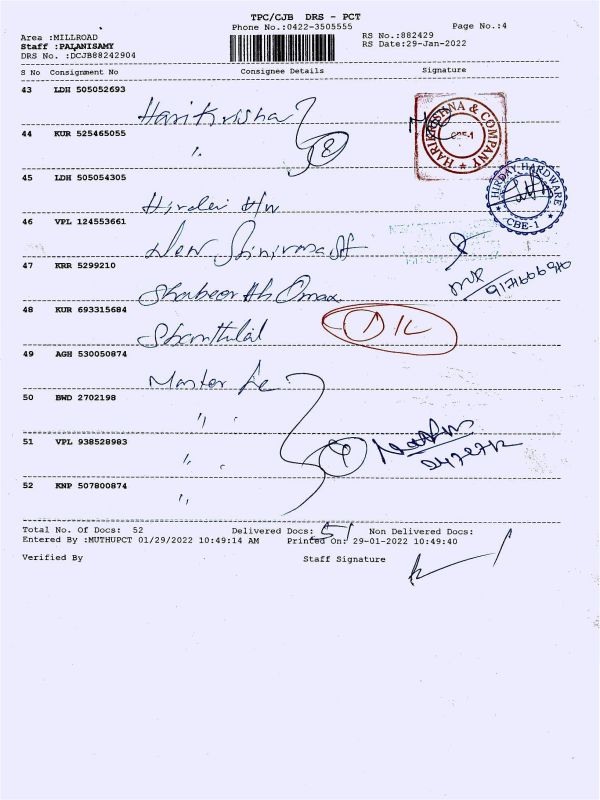 TPC/CJB DRS - PCT
Phone No.:0422-3505555 Page No.:4
Area :MILLROAD RS No.:882429
Staff :PALANISAMY RS Date:29-Jan-2022
DRS No. :DCJB88242904
S No Consignment No Consignee Details Signature
43 LDH 505052693
Harikrisha
44 KUR 525465055
" 8
HARIKRISHNA & COMPANY
CBE-1
45 LDH 505054305
Hirdai H/W
HIRDAY HARDWARE
CBE-1
46 VPL 124553661
New
47 KRR 5299210
Shabeer Ah Omar
48 KUR 693315684
Shanthilal
49 AGH 530050874
Master
50 BWD 2702198
" "
51 VPL 938528983
" "
4
52 KNP 507800874
"
Total No. Of Docs: 52 Delivered Docs: 51 Non Delivered Docs:
Entered By :MUTHUPCT 01/29/2022 10:49:14 AM Printed On: 29-01-2022 10:49:40
Verified By Staff Signature